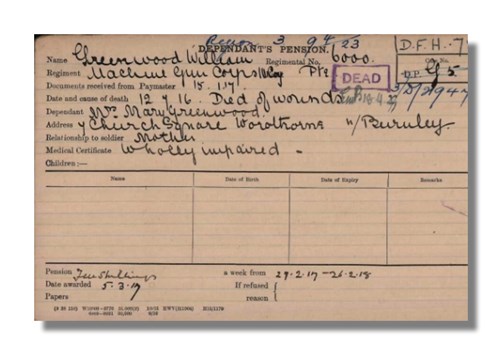 3 94 23
DEPENDANT'S PENSION.
D.F.H. 7
Name Greenwood William Regimental No. 6000.
Regiment Machine Gun Corps Pte
DEAD
D.P. G/5
Documents received from Paymaster 15.1.17.
3/8/2947
Date and cause of death 12 7 16. Died of wounds
Dependant Mrs Mary Greenwood.
Address 7 Church Square Worsthorne n/Burnley.
Relationship to soldier Mother
Medical Certificate Wholly impaired.
Children:—
Name Date of Birth Date of Expiry Remarks
Pension Ten Shillings a week from 27.2.17 — 26.2.18
Date awarded 5.3.17 If refused {
Papers reason